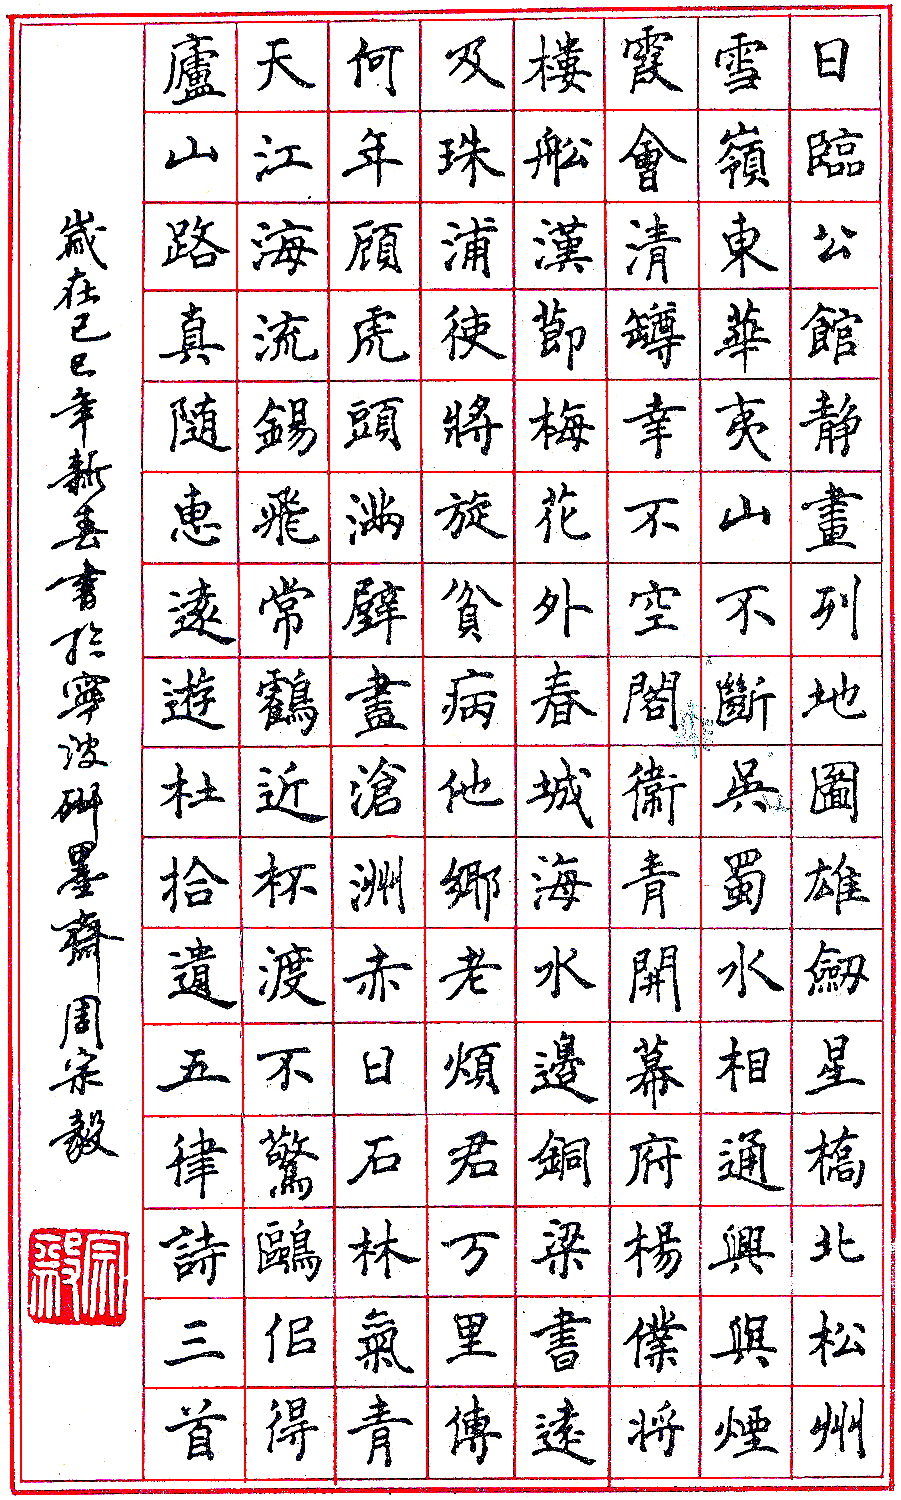 日臨公館静畫列地圖雄劔星橋北松州
雪嶺東華夷山不斷吳蜀水相通興與煙
霞會清罇幸不空閣衞青開幕府楊僕将
樓船漢節梅花外春城海水邊銅梁書遠
及珠浦使將旋貧病他鄉老煩君万里傳
何年顧虎頭滿壁畫滄洲赤日石林氣青
天江海流錫飛常鶴近杯渡不驚鷗佀得
廬山路真随惠遠遊杜拾遺五律詩三首
歲在己巳年新春書於寧波研墨齋周宗毅
宗毅